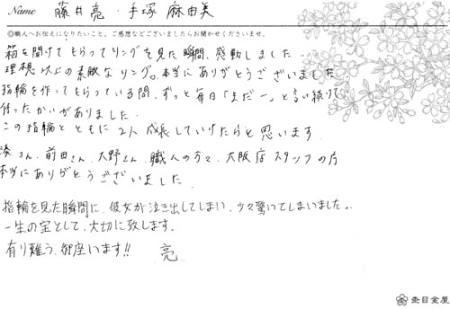 Name 藤井亮・手塚麻由美
◎職人へお伝えになりたいこと、ご感想などございましたらお聞かせくださいませ。
箱を開けてもらってリングを見た瞬間、感動しました。
理想以上の素敵なリング。本当にありがとうございました
指輪を作ってもらっている間、ずっと毎日「まだー」と言い続けて
待ったかいがありました。
この指輪とともに2人成長していけたらと思います。
さん、前田さん、大野さん、職人の方々、大阪店スタッフの方
本当にありがとうございました。
指輪を見た瞬間に、彼女が泣き出してしまい、少々驚いてしまいました。
一生の宝として、大切に致します。
有り難う、御座います!! 亮
杢目金屋